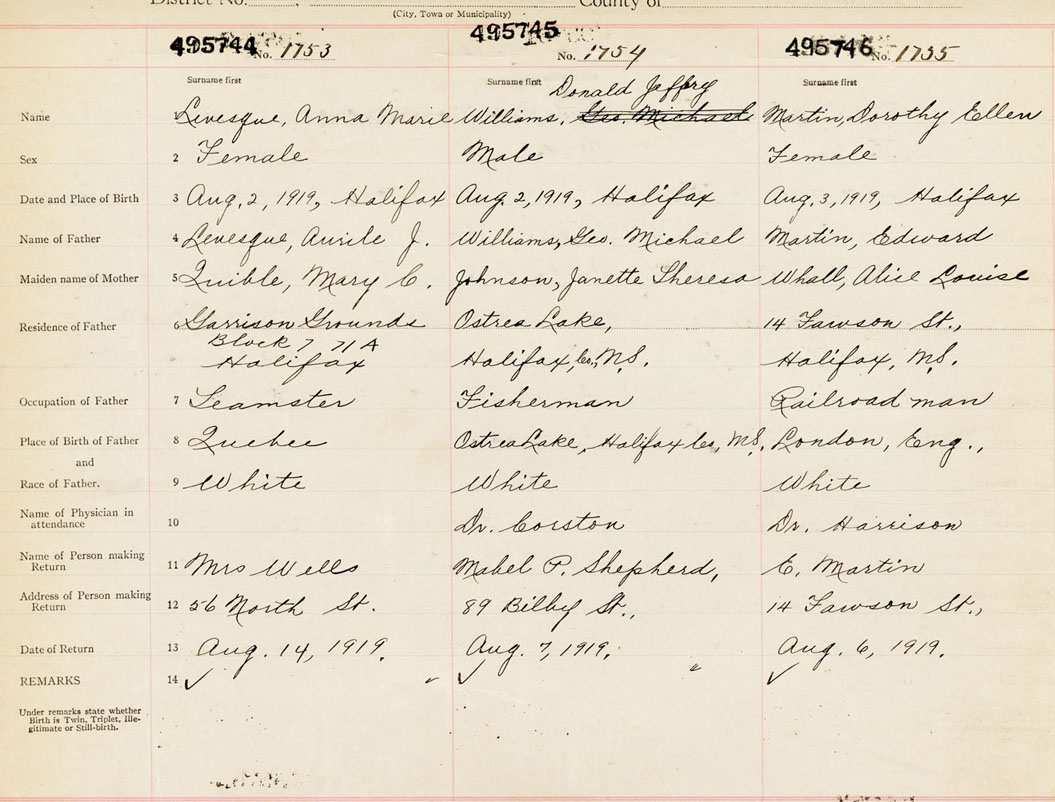 District No. County of
(City, Town or Municipality)
495744 No. 1753 495745 No. 1754 495746 No. 1755
Surname first Surname first Donald Jeffry Surname first
Name 1 Levesque, Anna Marie Williams, Geo. Michael Martin, Dorothy Ellen
Sex 2 Female Male Female
Date and Place of Birth 3 Aug. 2, 1919, Halifax Aug. 2, 1919, Halifax Aug. 3, 1919, Halifax
Name of Father 4 Levesque, Aurile J. Williams, Geo. Michael Martin, Edward
Maiden name of Mother 5 Quible, Mary C. Johnson, Janette Theresa Whall, Alice Louise
Residence of Father 6 Garrison Grounds Ostrea Lake, 14 Lawson St.,
Block 7 71 A
Halifax Halifax, Co., N.S. Halifax, N.S.
Occupation of Father 7 Teamster Fisherman Railroad man
Place of Birth of Father 8 Quebec Ostrea Lake, Halifax Co, N.S. London, Eng.,
and
Race of Father. 9 White White White
Name of Physician in
attendance 10 Dr. Corston Dr. Harrison
Name of Person making
Return 11 Mrs Wells Mabel P. Shepherd, E. Martin
Address of Person making
Return 12 56 North St. 89 Bilby St., 14 Lawson St.,
Date of Return 13 Aug. 14, 1919. Aug. 7, 1919. Aug. 6, 1919.
REMARKS 14 ✓ " ✓ " ✓
Under remarks state whether
Birth is Twin, Triplet, Ille-
gitimate or Still-birth.